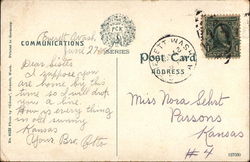 Everett Wash.
June 27
COMMUNICATIONS
SERIES
PCK
Post Card
ADDRESS
EVERETT WASH
Dear Sister
I suppose you
are home by this
time so I will drop
you a line.
How is every thing
in old sunny
Kansas
Your Bro. Otto
Miss Nora Sehrt
Parsons
Kansas
# 4